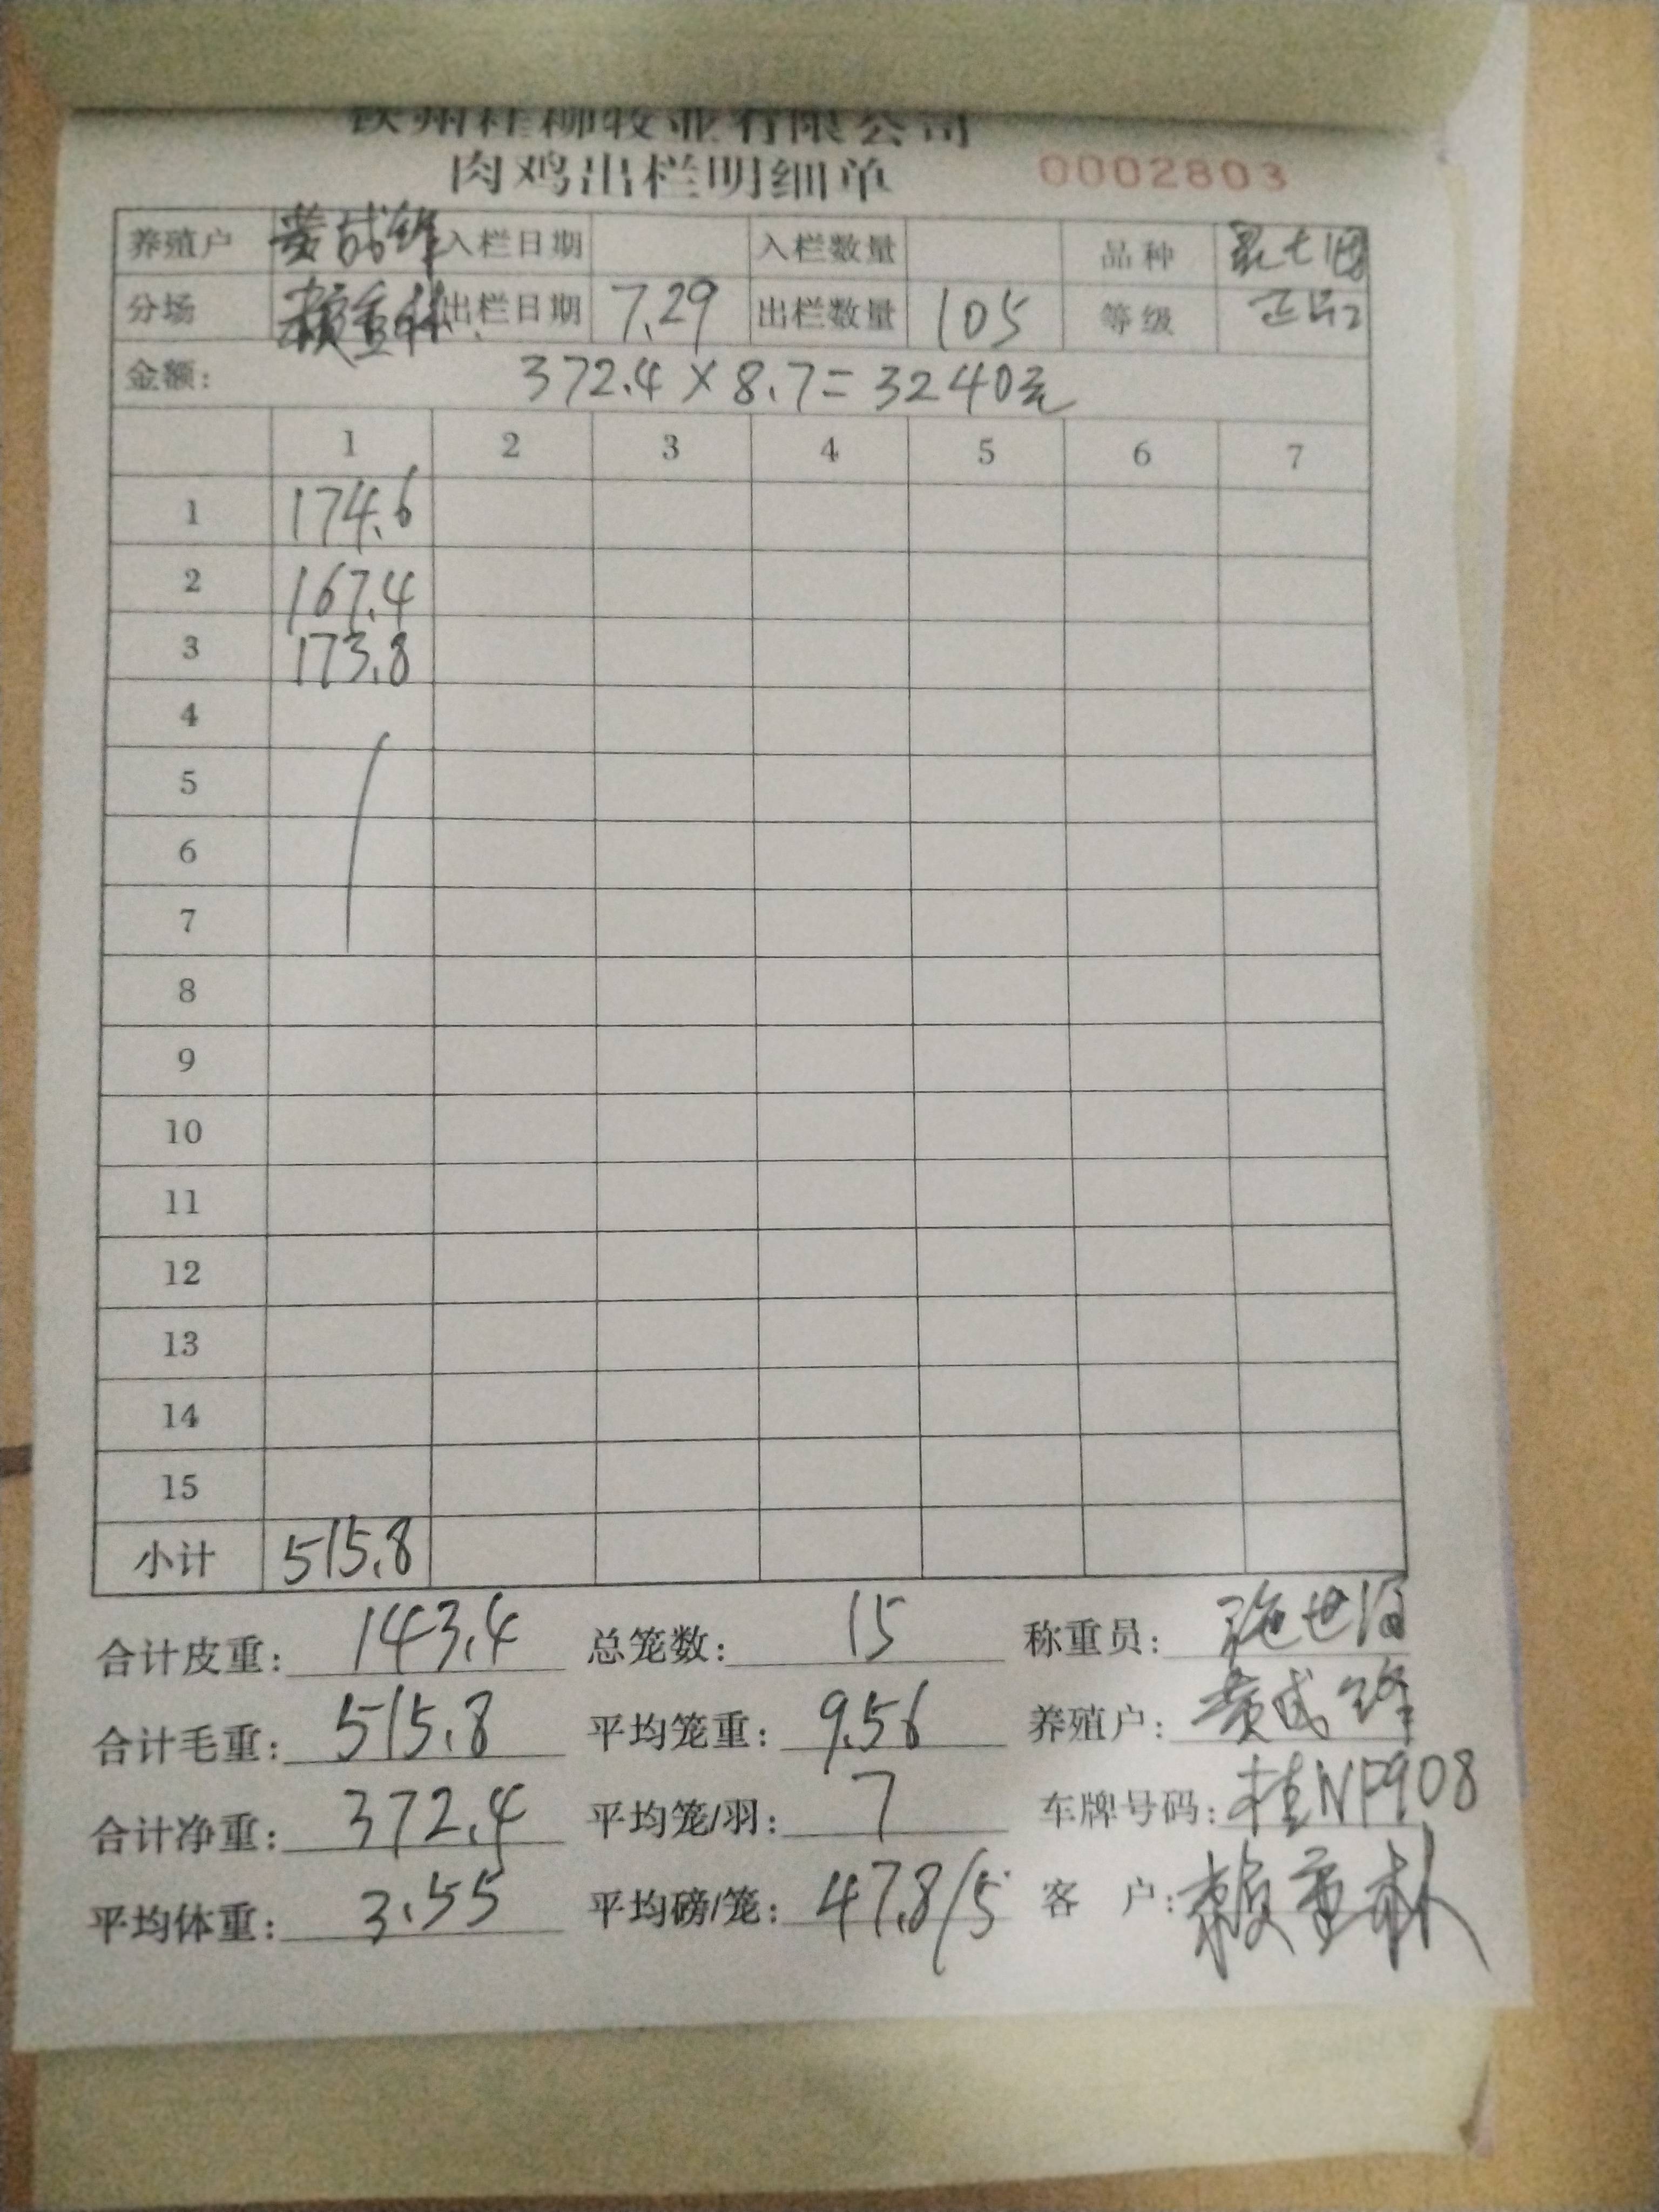 钦州桂柳牧业有限公司
肉鸡出栏明细单 0002803
养殖户 黄成锋 入栏日期 入栏数量 品种
分场 赖重林 出栏日期 7.29 出栏数量 105 等级 正品
金额: 372.4×8.7=3240元
1 2 3 4 5 6 7
1 174.6
2 167.4
3 173.8
4
5
6
7
8
9
10
11
12
13
14
15
小计 515.8
合计皮重: 143.4 总笼数: 15 称重员:
合计毛重: 515.8 平均笼重: 9.56 养殖户: 黄成锋
合计净重: 372.4 平均笼/羽: 7 车牌号码: 桂NP908
平均体重: 3.55 平均磅/笼: 47.8/5 客 户: 赖重林